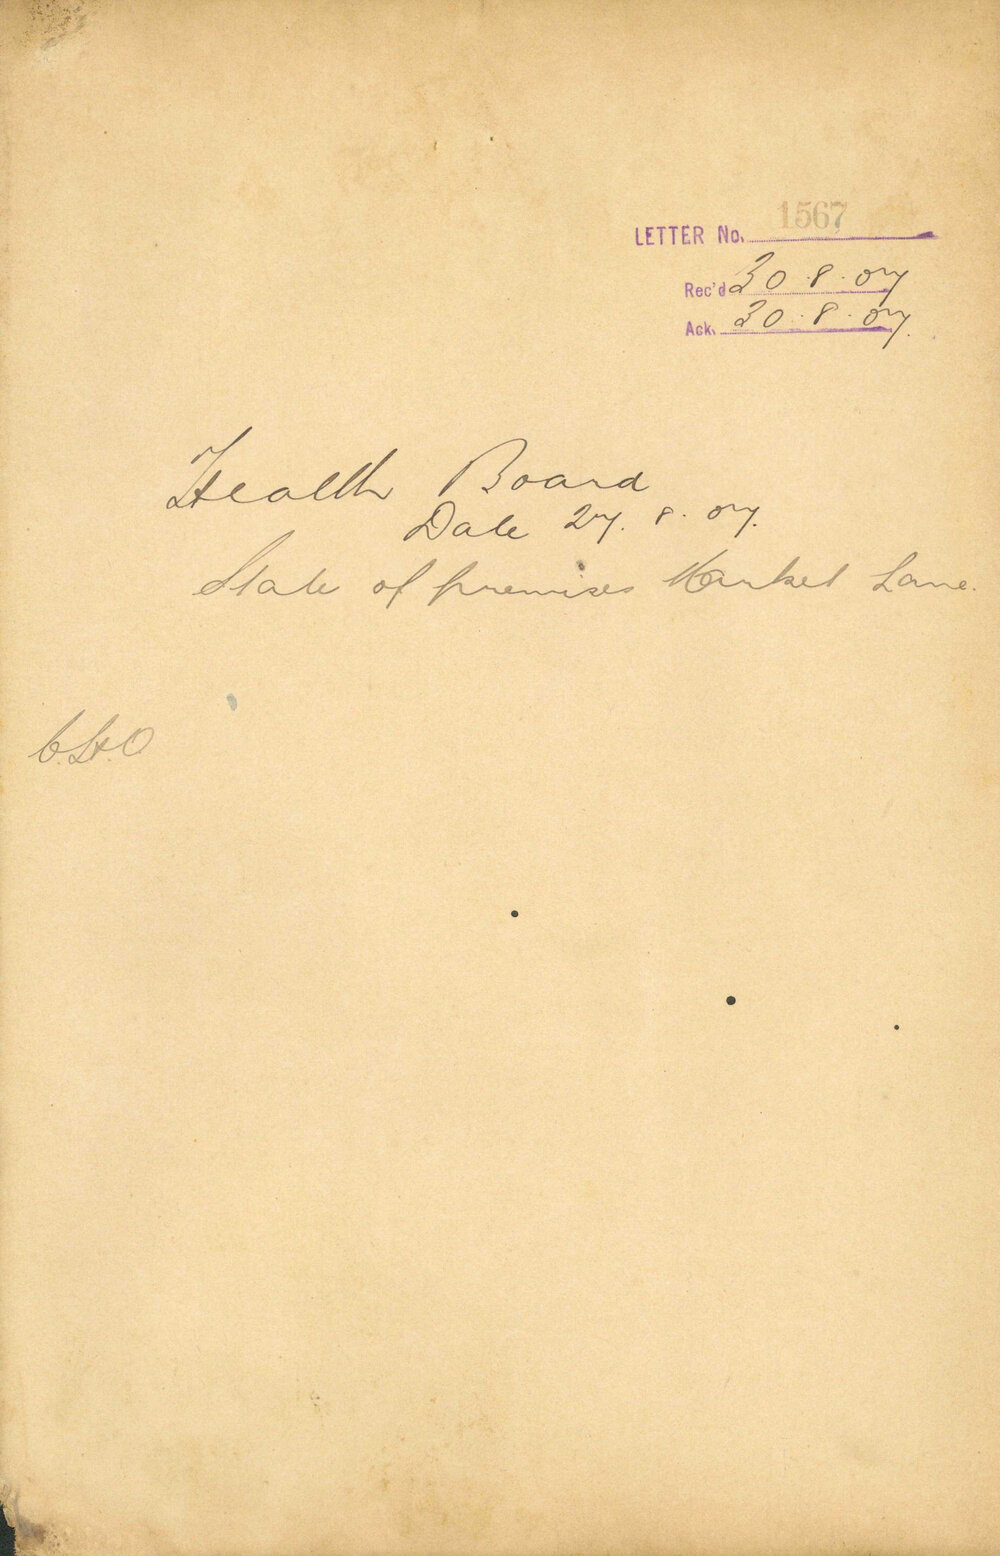 1567
LETTER No.
Rec'd 30.8.07
Ack. 30.8.07.
Health Board
Date 27.8.07.
State of premises Market Lane.
C.H.O